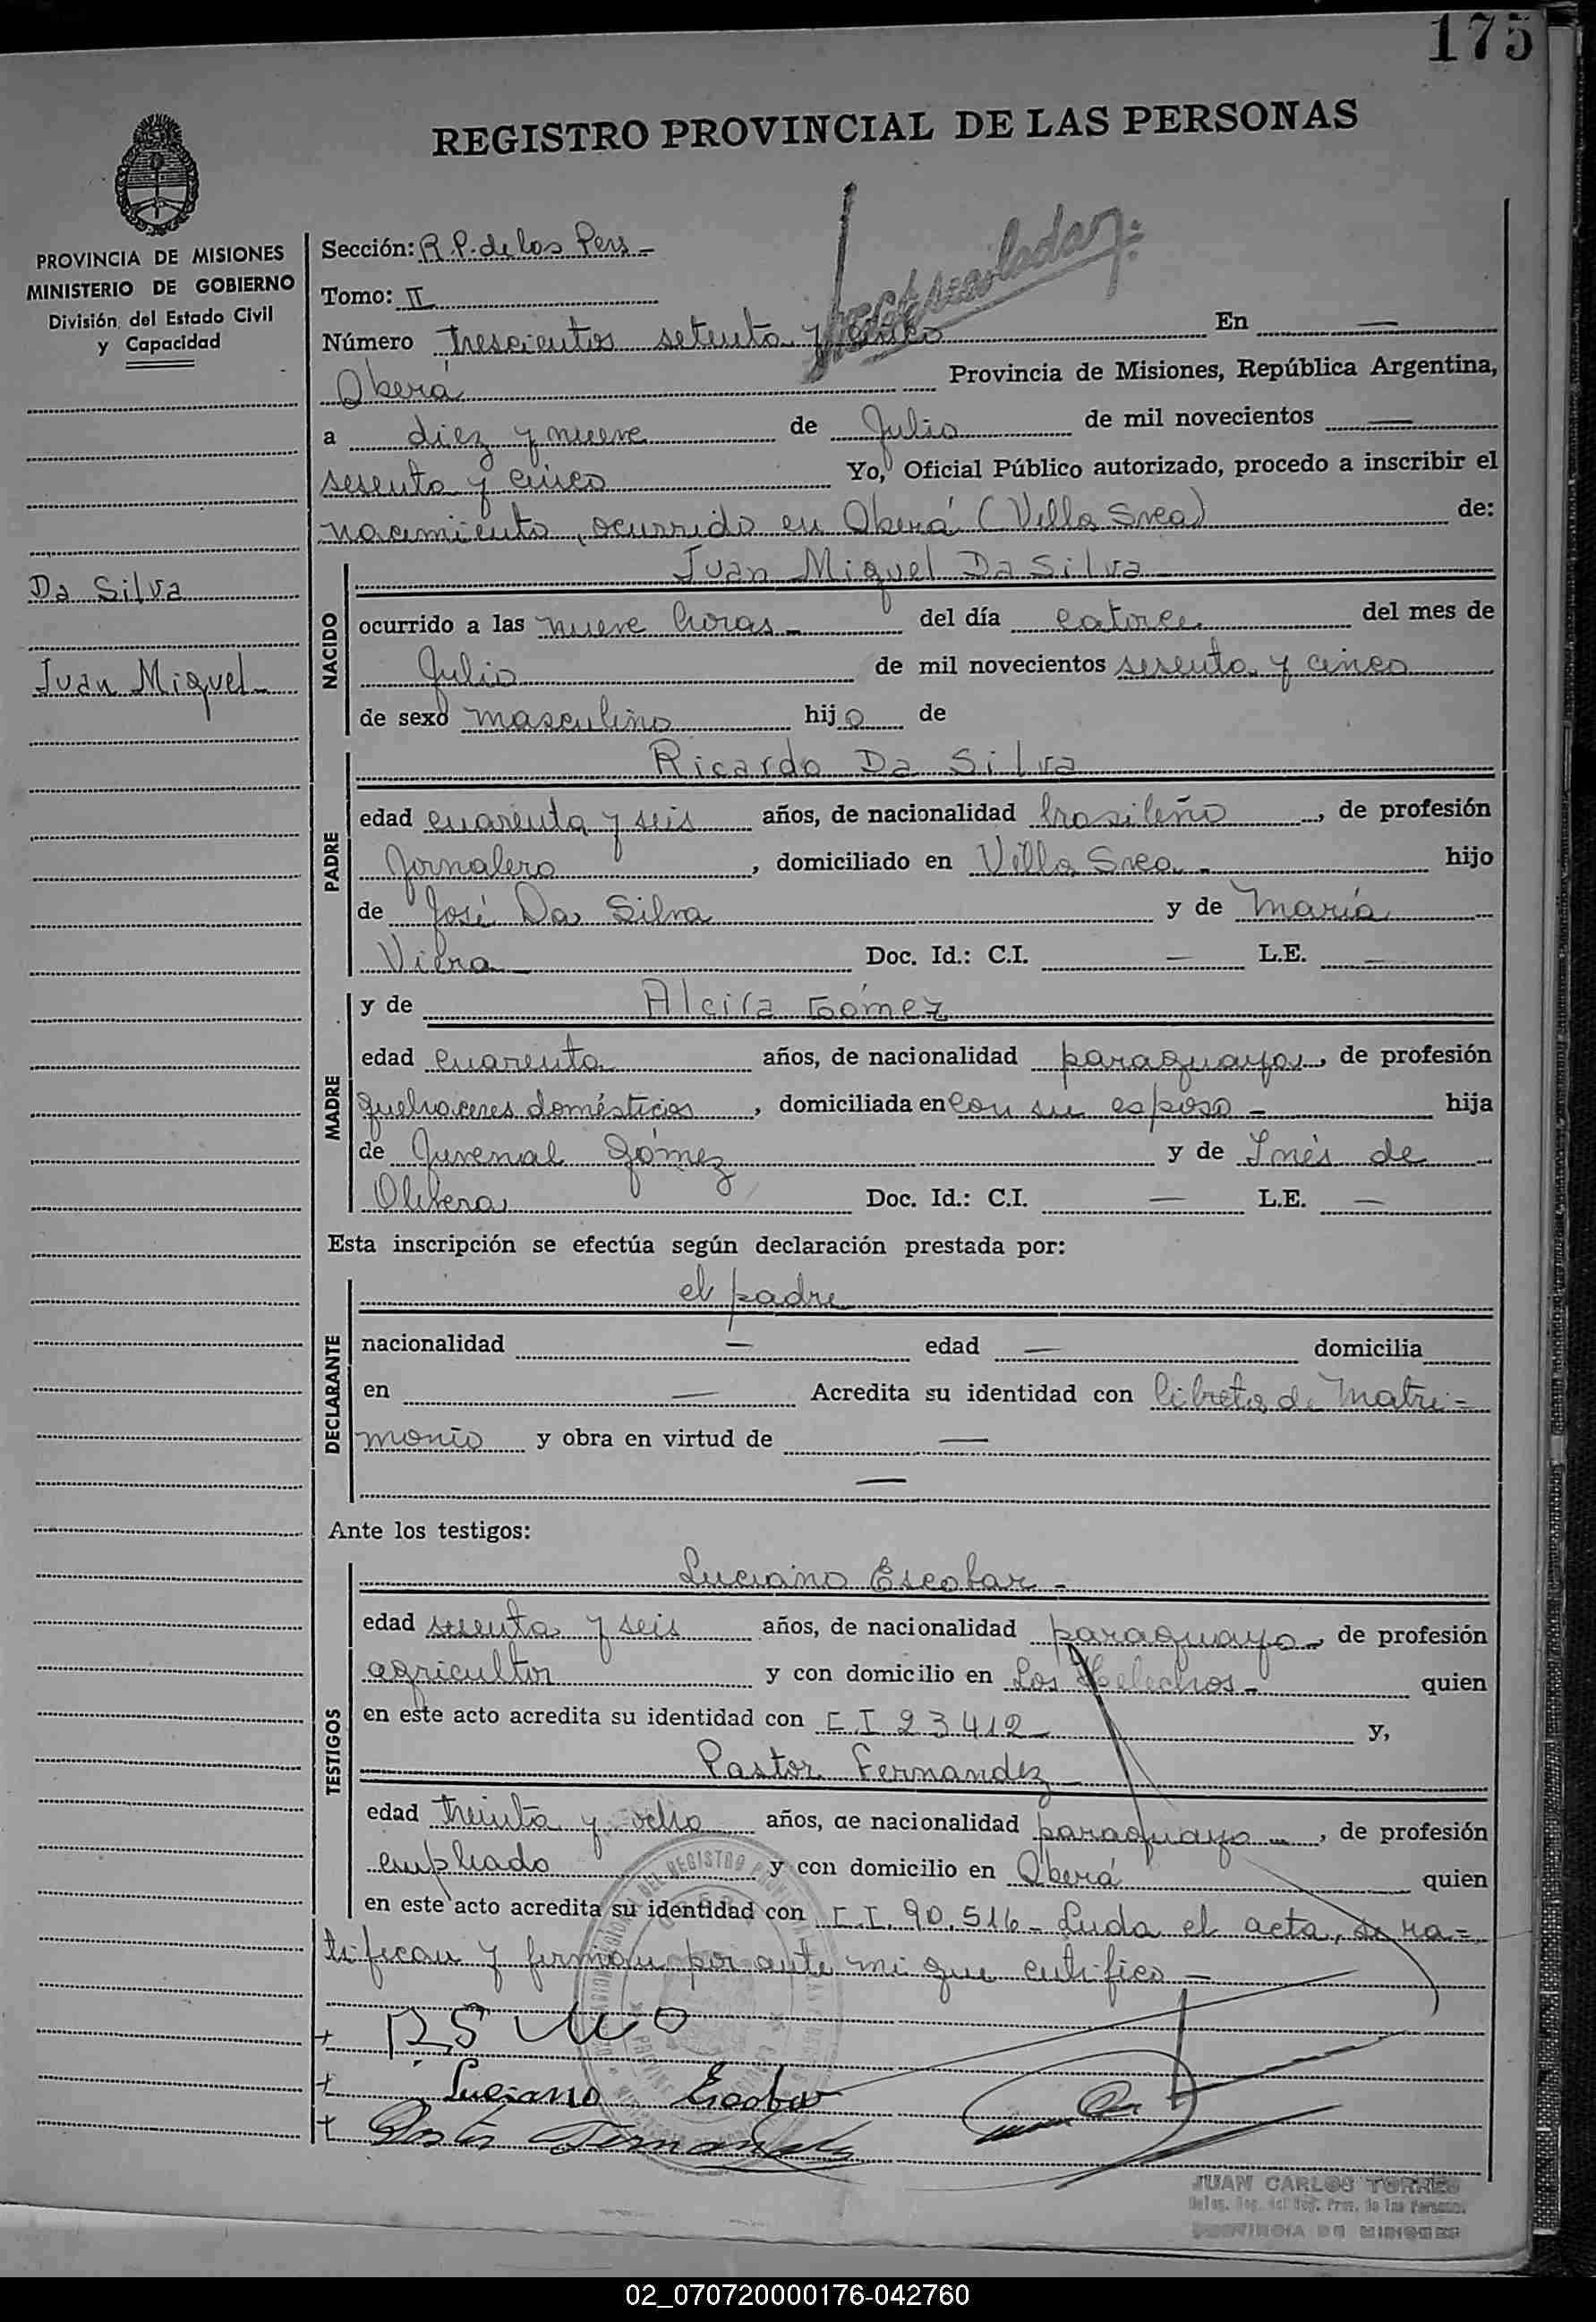 175
REGISTRO PROVINCIAL DE LAS PERSONAS
PROVINCIA DE MISIONES
MINISTERIO DE GOBIERNO
División del Estado Civil
y Capacidad
Da Silva
Juan Miguel
Sección: R.P. de las Pers -
Tomo: II
Número trescientos setenta y cinco En —
Oberá Provincia de Misiones, República Argentina,
a diez y nueve de Julio de mil novecientos —
sesenta y cinco Yo, Oficial Público autorizado, procedo a inscribir el
nacimiento, ocurrido en Oberá (Villa Svea) de:
NACIDO
Juan Miguel Da Silva
ocurrido a las nueve horas - del día catorce del mes de
Julio de mil novecientos sesenta y cinco
de sexo masculino hijo de
PADRE
Ricardo Da Silva
edad cuarenta y seis años, de nacionalidad brasileño, de profesión
Jornalero, domiciliado en Villa Svea - hijo
de José Da Silva y de María
Viera Doc. Id.: C.I. — L.E. —
MADRE
y de Alcira Gómez
edad cuarenta años, de nacionalidad paraguaya, de profesión
quehaceres domésticos, domiciliada en con su esposo - hija
de Juvenal Gómez y de Inés de
Olivera Doc. Id.: C.I. — L.E. —
Esta inscripción se efectúa según declaración prestada por:
DECLARANTE
el padre
nacionalidad — edad — domicilia
en — Acredita su identidad con libreta de Matri-
monio y obra en virtud de —
—
Ante los testigos:
TESTIGOS
Luciano Escobar -
edad sesenta y seis años, de nacionalidad paraguayo, de profesión
agricultor y con domicilio en Los Helechos - quien
en este acto acredita su identidad con C.I 23412 y,
Pastor Fernandez
edad treinta y ocho años, de nacionalidad paraguayo, de profesión
empleado y con domicilio en Oberá quien
en este acto acredita su identidad con C.I. 90.516 - Leida el acta, se ra-
tifican y firman por ante mi que certifico -
+
+ Luciano Escobar
+ Pastor Fernandez
JUAN CARLOS TORRES
PROVINCIA DE MISIONES
02_070720000176-042760